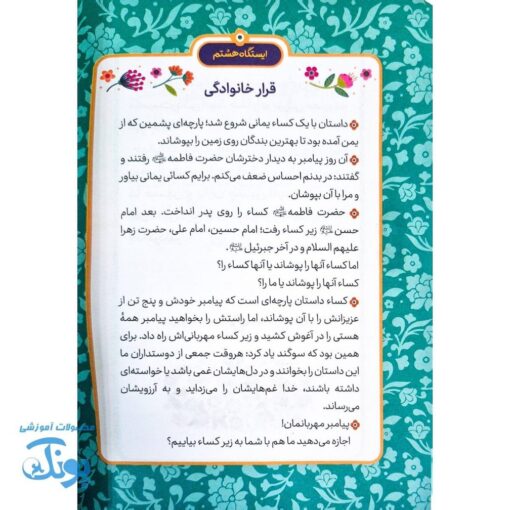 ایستگاه هشتم
قرار خانوادگی
داستان با یک کساء یمانی شروع شد؛ پارچه‌ای پشمین که از
یمن آمده بود تا بهترین بندگان روی زمین را بپوشاند.
آن روز پیامبر به دیدار دخترشان حضرت فاطمه رفتند و
گفتند: در بدنم احساس ضعف می‌کنم. برایم کسائی یمانی بیاور
و مرا با آن بپوشان.
حضرت فاطمه کساء را روی پدر انداخت. بعد امام
حسن زیر کساء رفت؛ امام حسین، امام علی، حضرت زهرا
علیهم السلام و در آخر جبرئیل.
اما کساء آنها را پوشاند یا آنها کساء را؟
کساء آنها را پوشاند یا ما را؟
کساء داستان پارچه‌ای است که پیامبر خودش و پنج تن از
عزیزانش را با آن پوشاند، اما راستش را بخواهید پیامبر همهٔ
هستی را در آغوش کشید و زیر کساء مهربانی‌اش راه داد. برای
همین بود که سوگند یاد کرد: هروقت جمعی از دوستداران ما
این داستان را بخوانند و در دل‌هایشان غمی باشد یا خواسته‌ای
داشته باشند، خدا غم‌هایشان را می‌زداید و به آرزویشان
می‌رساند.
پیامبر مهربانمان!
اجازه می‌دهید ما هم با شما به زیر کساء بیاییم؟
محصولات آموزشی
پونک